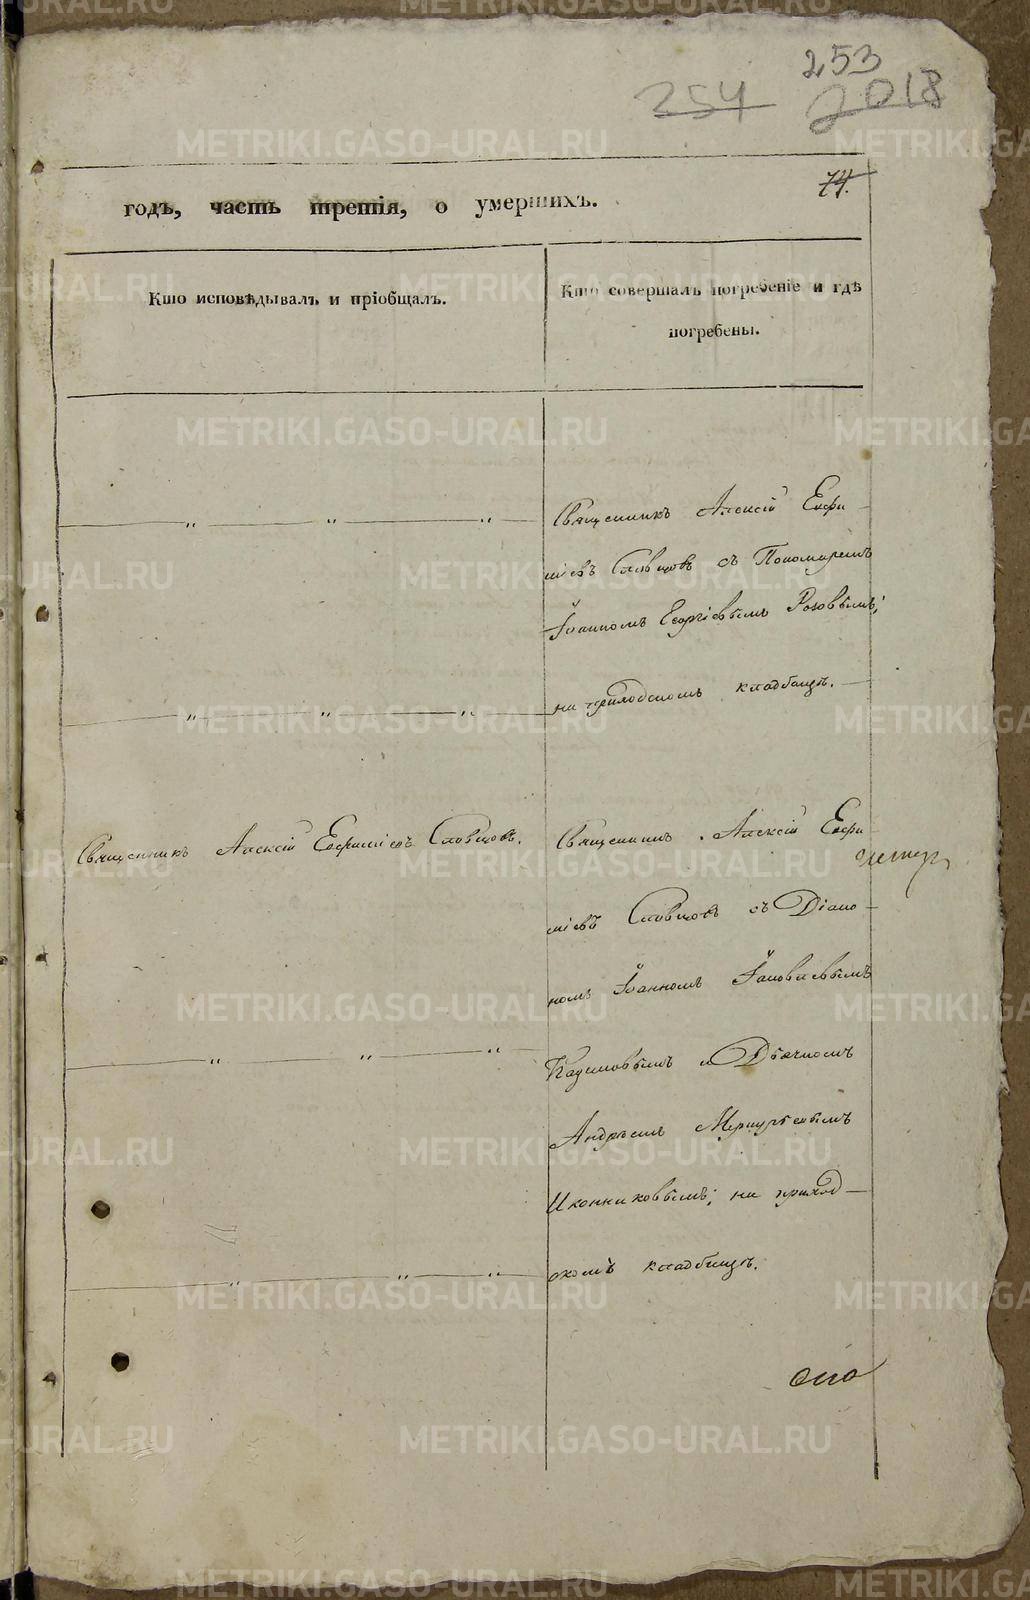 253
254 2018
74.
годъ, часть третія, о умершихъ.
Кто исповѣдывалъ и пріобщалъ.
Кто совершалъ погребеніе и гдѣ
погребены.
Священникъ Алексій Евфи-
міевъ Словцовъ съ Пономаремъ
Іоанномъ Георгіевымъ Розовымъ;
на приходскомъ кладбищѣ.
Священникъ Алексій Евфиміевъ Словцовъ.
Священникъ Алексій Евфи-
міевъ Словцовъ съ Діако-
номъ Іоанномъ Іаковлевымъ
и Дьячкомъ
Андреемъ Меркурьевымъ
Иконниковымъ; на приход-
скомъ кладбищѣ.
METRIKI.GASO-URAL.RU